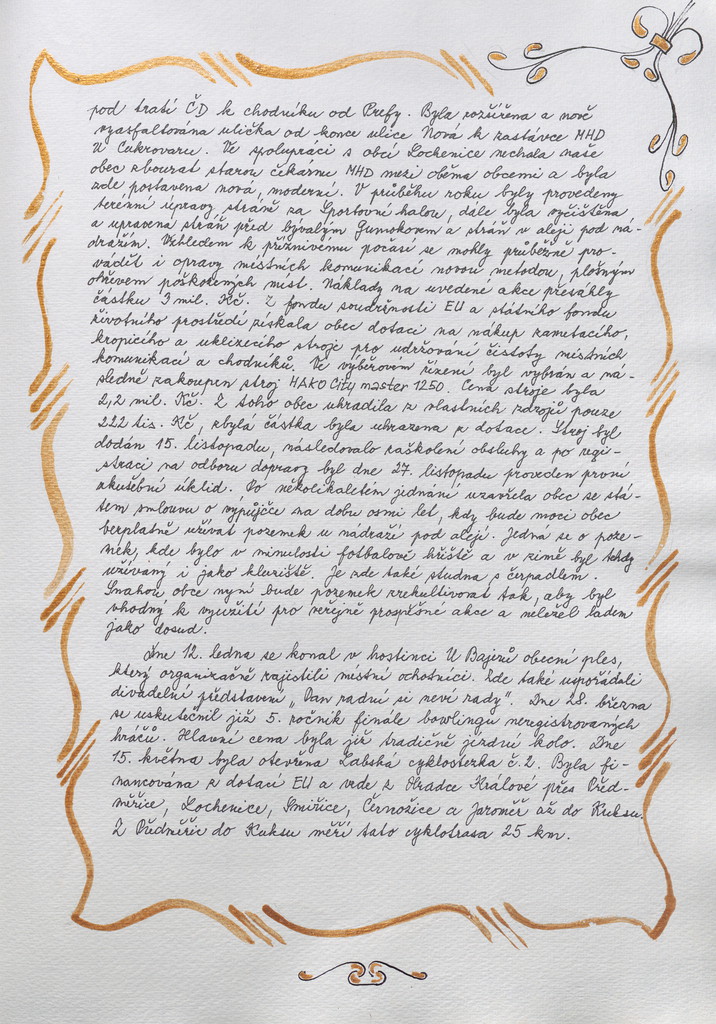 pod tratí ČD k chodníku od Prefy. Byla rozšířena a nově
vyasfaltována ulička od konce ulice Nová k zastávce MHD
U Cukrovaru. Ve spolupráci s obcí Lochenice nechala naše
obec zbourat starou čekárnu MHD mezi oběma obcemi a byla
zde postavena nová, moderní. V průběhu roku byly provedeny
terénní úpravy stráně za Sportovní halou, dále byla vyčištěna
a upravena stráň před bývalým Gumokovem a stráň v aleji pod ná-
dražím. Vzhledem k příznivému počasí se mohly průběžně pro-
vádět i opravy místních komunikací novou metodou, plošným
ohřevem poškozených míst. Náklady na uvedené akce přesáhly
částku 3 mil. Kč. Z fondu soudržnosti EU a státního fondu
životního prostředí získala obec dotaci na nákup zametacího,
kropicího a uklízecího stroje pro udržování čistoty místních
komunikací a chodníků. Ve výběrovém řízení byl vybrán a ná-
sledně zakoupen stroj HAKO City master 1250. Cena stroje byla
2,2 mil. Kč. Z toho obec uhradila z vlastních zdrojů pouze
222 tis. Kč, zbylá částka byla uhrazena z dotace. Stroj byl
dodán 15. listopadu, následovalo zaškolení obsluhy a po regi-
straci na odboru dopravy byl dne 27. listopadu proveden první
zkušební úklid. Po několikaletém jednání uzavřela obec se stá-
tem smlouvu o výpůjčce na dobu osmi let, kdy bude moci obec
bezplatně užívat pozemek u nádraží pod alejí. Jedná se o poze-
mek, kde bylo v minulosti fotbalové hřiště a v zimě byl tehdy
užívaný i jako kluziště. Je zde také studna s čerpadlem.
Snahou obce nyní bude pozemek zrekultivovat tak, aby byl
vhodný k využití pro veřejně prospěšné akce a neležel ladem
jako dosud.
Dne 12. ledna se konal v hostinci U Bajerů obecní ples,
který organizačně zajistili místní ochotníci. Zde také uspořádali
divadelní představení „Pan radní si neví rady". Dne 28. března
se uskutečnil již 5. ročník finále bowlingu neregistrovaných
hráčů. Hlavní cena byla již tradičně jízdní kolo. Dne
15. května byla otevřena Labská cyklostezka č. 2. Byla fi-
nancována z dotací EU a vede z Hradce Králové přes Před-
měřice, Lochenice, Smiřice, Černožice a Jaroměř až do Kuksu.
Z Předměřic do Kuksu měří tato cyklotrasa 25 km.